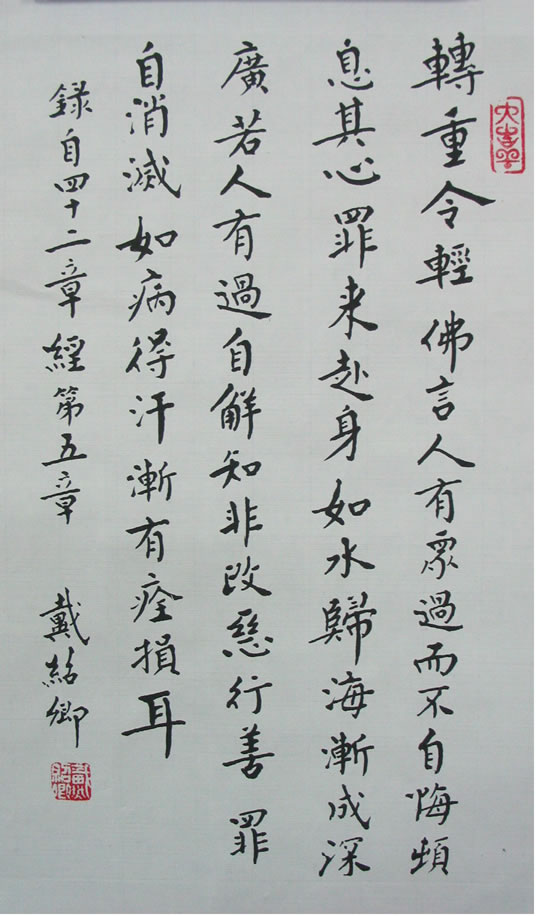 轉重令輕 佛言人有眾過而不自悔頓
息其心罪来赴身如水歸海漸成深
廣若人有過自解知非改惡行善 罪
自消滅如病得汗漸有痊損耳
錄自四十二章經第五章 戴紹卿